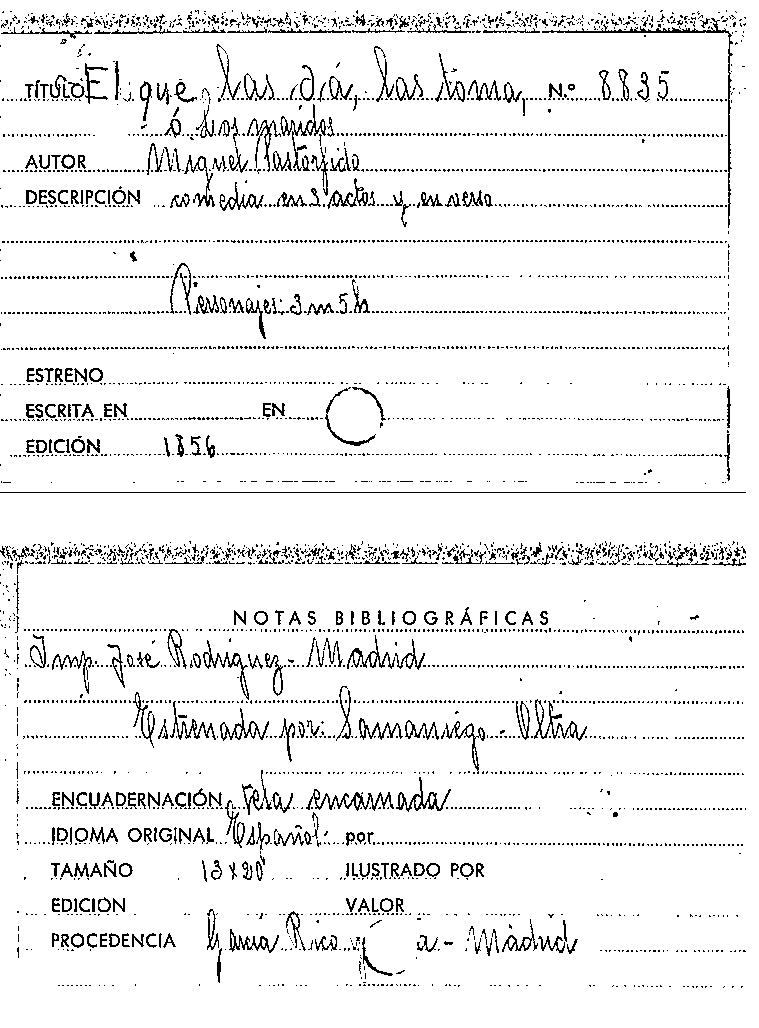 TÍTULO El que las dá, las toma, N.º 8835
ó Los maridos
AUTOR Miguel Pastorfido
DESCRIPCIÓN comedia en 3 actos y en verso
Personajes: 3 m 5 h
ESTRENO
ESCRITA EN EN
EDICIÓN 1856
NOTAS BIBLIOGRÁFICAS
Imp. José Rodriguez - Madrid
Estrenada por: Samaniego - Oltra
ENCUADERNACIÓN tela encarnada
IDIOMA ORIGINAL Español por
TAMAÑO 13 x 20 ILUSTRADO POR
EDICION VALOR
PROCEDENCIA García Rico y a - Madrid